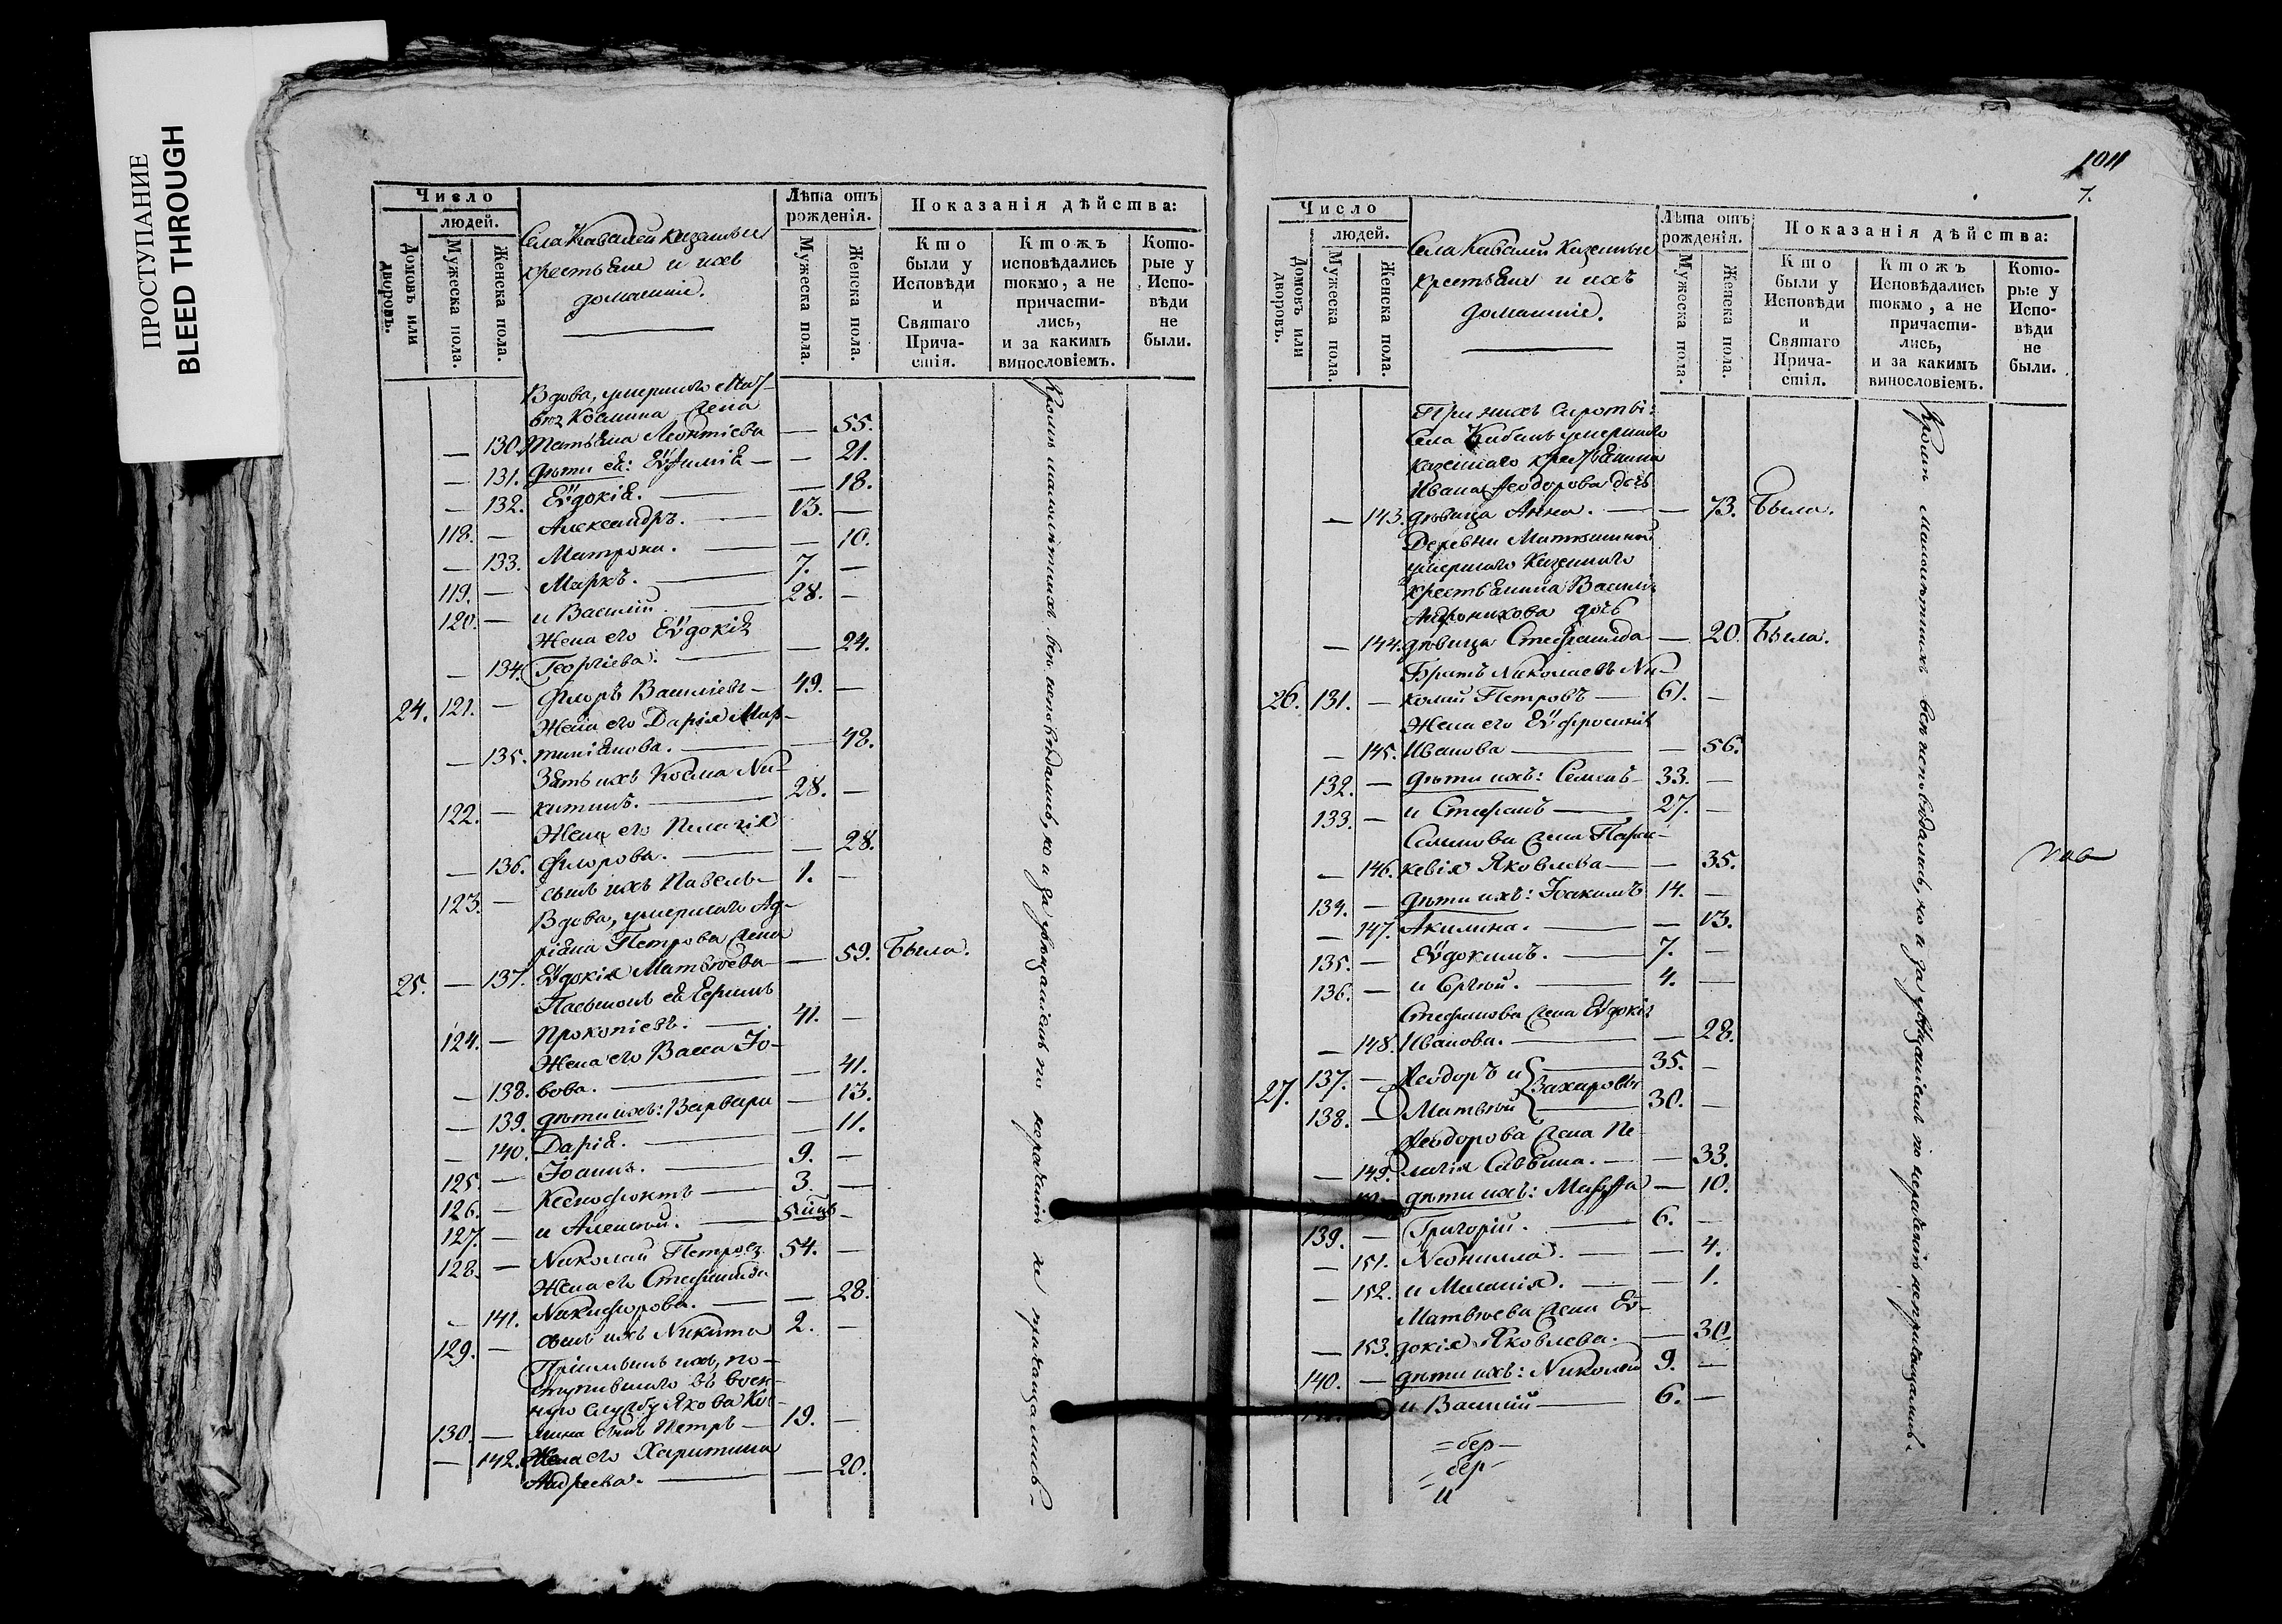 ПРОСТУПАНИЕ
BLEED THROUGH
Число
людей.
Домовъ или дворовъ.
Мужеска пола.
Женска пола.
Села Кавалей казенныя
крестьяне и ихъ
домашніе.
Лѣта отъ рожденія.
Мужеска пола.
Женска пола.
Показанія дѣйства:
Кто были у Исповѣди и Святаго Причастія.
Ктожъ исповѣдались токмо, а не причастились, и за какимъ винословіемъ.
Которые у Исповѣди не были.
Вдова, умершаго
Космина жена
— 130. Татьяна Леонтіева — 55.
— 131. Дѣти ея: Еѵфимія — — 21.
— 132. Еѵдокія. — — 18.
118. — Александръ. — 13. —
— 133. Матрона. — — 10.
119. — Маркъ. — 7. —
120. — и Василій. — 28. —
Жена его Еѵдокія
— 134. Георгіева. — — 24.
24. 121. — Флоръ Василіевъ — 49. —
Жена его Дарія Мар-
— 135. тиніанова. — — 48.
Зять ихъ Косма Ни-
122. — китинъ. — 28. —
Жена его Пелагія
— 136. Флорова. — — 28.
123. — сынъ ихъ Павелъ — 1. —
Вдова, умершаго Ад-
ріана Петрова жена
25. — 137. Еѵдокія Матвѣева — — 59. Была.
Пасынокъ ея Ермилъ
124. — Прокопіевъ. — 41. —
Жена его Васса Іо-
— 138. вова. — — 41.
— 139. дѣти ихъ: Варвара — 13.
— 140. Дарія. — — 11.
125. — Іоаннъ. — 9. —
126. — Ксенофонтъ — 3. —
127. — и Алексѣй. —
128. — Николай Петровъ 54. —
Жена его Стефанида
— 141. Никифорова. — — 28.
129. — сынъ ихъ Никита 2. —
Пріемышъ ихъ, по-
ступившаго въ воен-
ную службу Якова Кос-
130. — мина сынъ Петръ — 19. —
— 142. Жена его Харитина
Андреева. — — 20.
Кромѣ малолѣтнихъ всѣ исповѣдались, но и за увѣщаніемъ по нераченію не причащались.
1011
7.
Число
людей.
Домовъ или дворовъ.
Мужеска пола.
Женска пола.
Села Кавалей Казенные
крестьяне и ихъ
домашніе.
Лѣта отъ рожденія.
Мужеска пола.
Женска пола.
Показанія дѣйства:
Кто были у Исповѣди и Святаго Причастія.
Ктожъ Исповѣдались токмо, а не причастились, и за какимъ винословіемъ.
Которые у Исповѣди не были.
При нихъ сироты:
Села умершаго
казеннаго крестьянина
Ивана Ѳеодорова дочь
— 143. дѣвица Анна. — — 73. Была.
Деревни
умершаго казеннаго
крестьянина Василія
Андроникова дочь
— 144. дѣвица Стефанида — 20. Была.
Братъ Николаевъ Ни-
26. 131. — колай Петровъ — 61. —
Жена его Еѵфросинія
— 145. Иванова — — 56.
132. — дѣти ихъ: Семенъ — 33. —
133. — и Стефанъ — 27. —
Семенова жена Парас-
— 146. кевія Яковлева — — 35.
134. — дѣти ихъ: Іоакимъ 14. —
— 147. Акилина. — — 13.
135. — Еѵдокимъ. — 7. —
136. — и Сергій. — 4. —
Стефанова жена Еѵдокія
— 148. Иванова. — — 28.
27. 137. — Ѳеодоръ и — 35. —
Захаровы
138. — Матвѣй — 30. —
Ѳеодорова жена Пе-
— 149. лагія Саввина. — — 33.
дѣти ихъ: Марѳа — 10.
139. — Григорій. — 6. —
— 151. Неонилла. — — 4.
— 152. и Меланія. — — 1.
Матвѣева жена Еѵ-
— 153. докія Яковлева. — 30.
140. — дѣти ихъ: Николай 9. —
и Василій — 6. —
Кромѣ малолѣтнихъ всѣ исповѣдались, но и за увѣщаніемъ по нераченію не причащались.